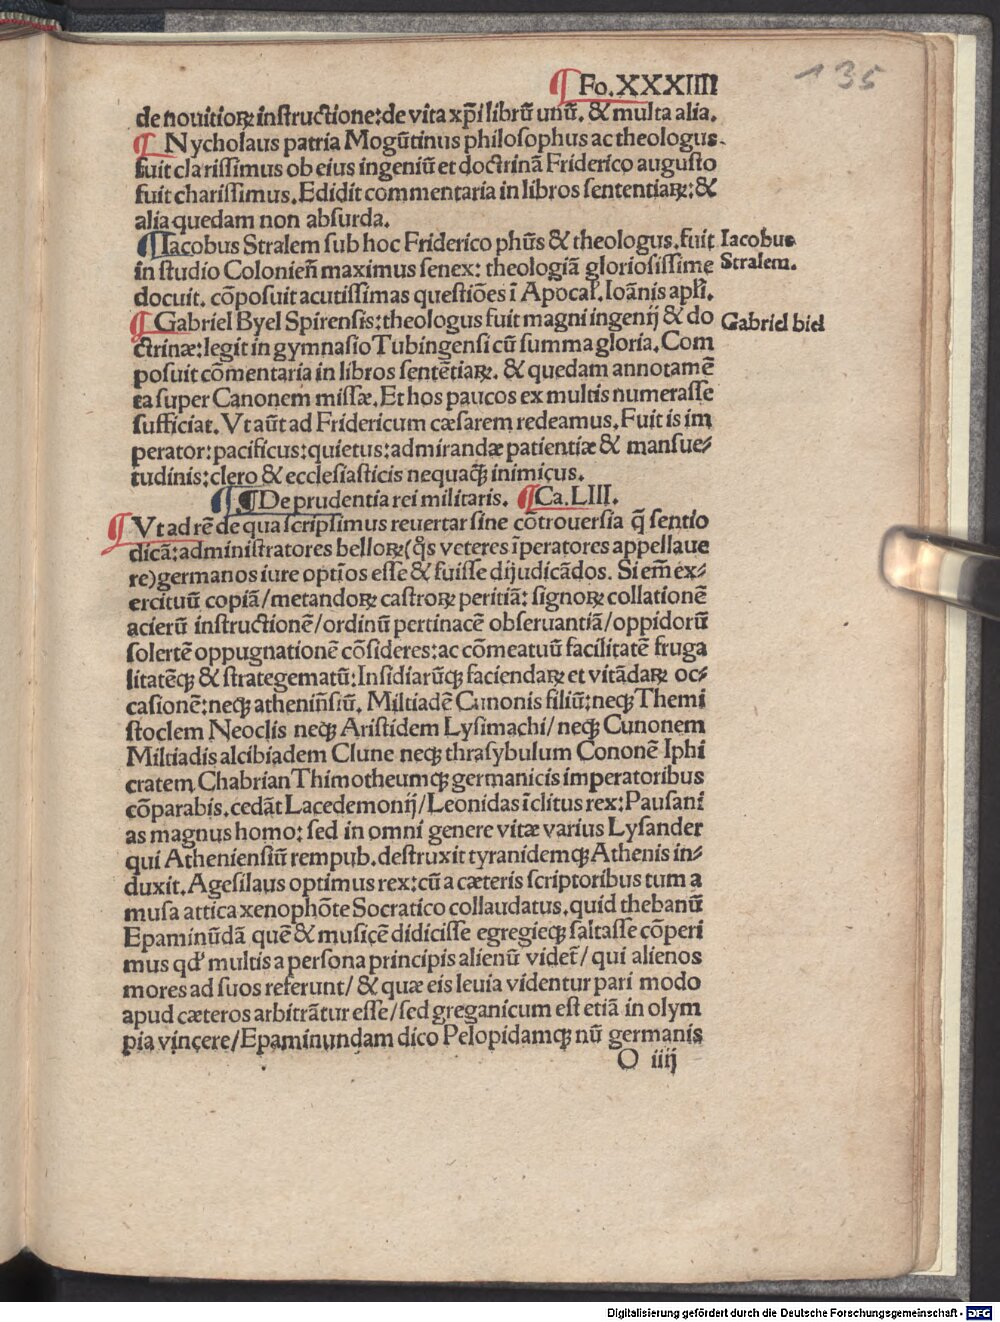 135
¶ Fo. XXXIIII
de nouitioꝝ instructione: de vita xp̄i librū unū. & multa alia.
¶ Nycholaus patria Mogūtinus philosophus ac theologus.
fuit clarissimus ob eius ingeniū et doctrinā Friderico augusto
fuit charissimus. Edidit commentaria in libros sententiaꝝ: &
alia quedam non absurda.
¶ Iacobus Stralem sub hoc Friderico phūs & theologus. fuit
Iacobus
in studio Colonien̄ maximus senex: theologiā gloriosissime
Stralem.
docuit. cōposuit acutissimas questiōes ī Apocal̄. Ioānis apl̄i.
¶ Gabriel Byel Spirensis: theologus fuit magni ingenij & do
Gabriel biel
ctrinæ: legit in gymnasio Tubingensi cū summa gloria. Com
posuit cōmentaria in libros sentētiaꝝ. & quedam annotamē
ta super Canonem missæ. Et hos paucos ex multis numerasse
sufficiat. Vt aūt ad Fridericum cæsarem redeamus. Fuit is im
perator: pacificus: quietus: admirandæ patientiæ & mansue⸗
tudinis: clero & ecclesiasticis nequaꝙ̄ inimicus.
¶ ¶ De prudentia rei militaris. ¶ Ca. LIII.
¶ Vt ad rē de qua scripsimus reuertar sine cōtrouersia q̄ sentio
dicā: administratores belloꝝ (q̊s veteres īperatores appellaue
re) germanos iure optīos esse & fuisse dijudicādos. Si em̄ ex⸗
ercituū copiā / metandoꝝ castroꝝ peritiā: signoꝝ collationē
acierū instructionē / ordinū pertinacē obseruantiā / oppidorū
solertē oppugnationē cōsideres: ac cōmeatuū facilitatē fruga
litatēqꝫ & strategematū: Insidiarūqꝫ faciendaꝝ et vitādaꝝ oc⸗
casionē: neqꝫ athenin̄siū. Miltiadē Cimonis filiū: neqꝫ Themi
stoclem Neoclis neqꝫ Aristidem Lysimachi / neqꝫ Cunonem
Miltiadis alcibiadem Clune neqꝫ thrasybulum Cononē Iphi
cratem Chabrian Thimotheumqꝫ germanicis imperatoribus
cōparabis. cedāt Lacedemonij / Leonidas īclitus rex: Pausani
as magnus homo: sed in omni genere vitæ varius Lysander
qui Atheniensiū rempub. destruxit tyranidemqꝫ Athenis in⸗
duxit. Agesilaus optimus rex: cū a cæteris scriptoribus tum a
musa attica xenophōte Socratico collaudatus. quid thebanū
Epaminūdā quē & musicē didicisse egregieqꝫ saltasse cōperi
mus qd' multis a persona principis alienū videt̄ / qui alienos
mores ad suos referunt / & quæ eis leuia videntur pari modo
apud cæteros arbitrātur esse / sed greganicum est etiā in olym
pia vincere / Epaminundam dico Pelopidamqꝫ nū germanis
O iiij
Digitalisierung gefördert durch die Deutsche Forschungsgemeinschaft - DFG